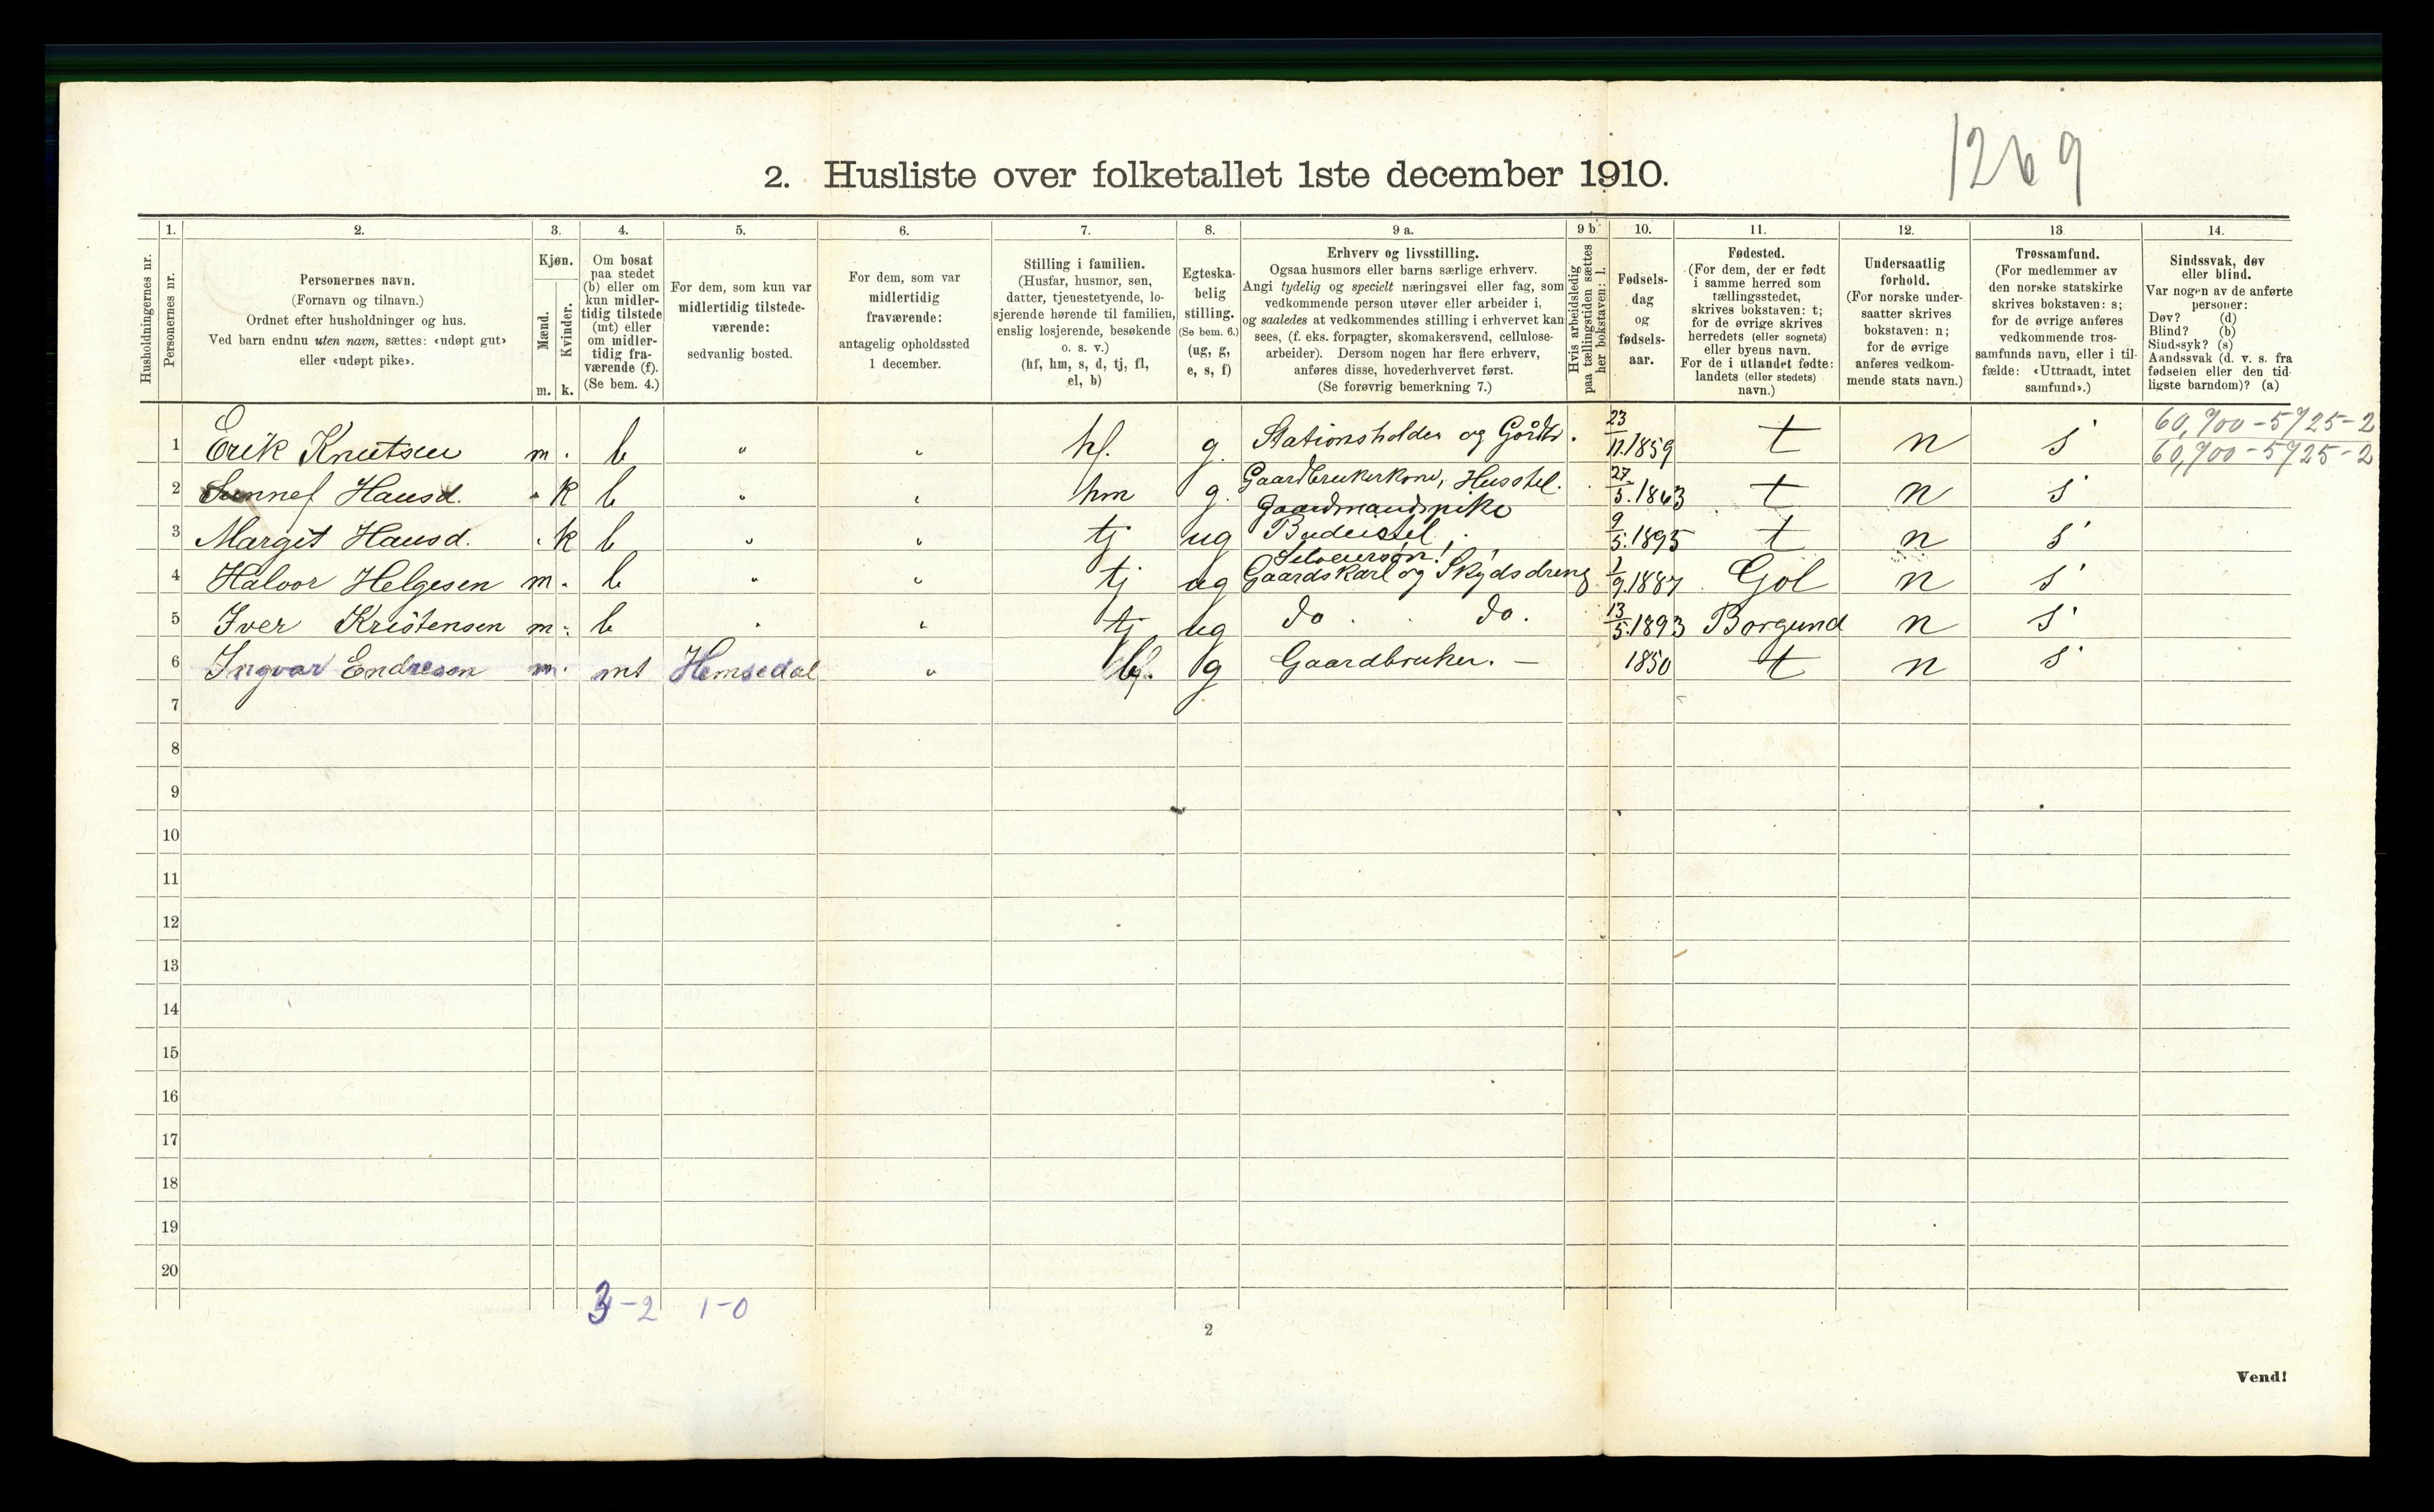 1269
2. Husliste over folketallet 1ste december 1910.
Husholdningernes nr.
1. Personernes nr.
2. Personernes navn. (Fornavn og tilnavn.) Ordnet efter husholdninger og hus. Ved barn endnu uten navn, sættes: «udøpt gut» eller «udøpt pike».
3. Kjøn. Mænd. m. Kvinder. k.
4. Om bosat paa stedet (b) eller om kun midlertidig tilstede (mt) eller om midlertidig fraværende (f). (Se bem. 4.)
5. For dem, som kun var midlertidig tilstedeværende: sedvanlig bosted.
6. For dem, som var midlertidig fraværende: antagelig opholdssted 1 december.
7. Stilling i familien. (Husfar, husmor, søn, datter, tjenestetyende, losjerende hørende til familien, enslig losjerende, besøkende o. s. v.) (hf, hm, s, d, tj, fl, el, b)
8. Egteskabelig stilling. (Se bem. 6.) (ug, g, e, s, f)
9 a. Erhverv og livsstilling. Ogsaa husmors eller barns særlige erhverv. Angi tydelig og specielt næringsvei eller fag, som vedkommende person utøver eller arbeider i, og saaledes at vedkommendes stilling i erhvervet kan sees, (f. eks. forpagter, skomakersvend, cellulosearbeider). Dersom nogen har flere erhverv, anføres disse, hovederhvervet først. (Se forøvrig bemerkning 7.)
9 b. Hvis arbeidsledig paa tællingstiden sættes her bokstaven: l.
10. Fødselsdag og fødselsaar.
11. Fødested. (For dem, der er født i samme herred som tællingsstedet, skrives bokstaven: t; for de øvrige skrives herredets (eller sognets) eller byens navn. For de i utlandet fødte: landets (eller stedets) navn.)
12. Undersaatlig forhold. (For norske undersaatter skrives bokstaven: n; for de øvrige anføres vedkommende stats navn.)
13. Trossamfund. (For medlemmer av den norske statskirke skrives bokstaven: s; for de øvrige anføres vedkommende trossamfunds navn, eller i tilfælde: «Uttraadt, intet samfund».)
14. Sindssvak, døv eller blind. Var nogen av de anførte personer: Døv? (d) Blind? (b) Sindssyk? (s) Aandssvak (d. v. s. fra fødselen eller den tidligste barndom)? (a)
1 Erik Knutsen m. b " " hf. g. Stationsholder og Gårdbr. 23/11.1859 t n s 60,900-5725-2
60,900-5725-2
2 Sunnef Hansd. k b " " hm g. Gaardbrukerkone, Husstel. 27/5.1863 t n s
Gaardmandspike
3 Margit Hansd. k b " " tj ug Budeistel, 9/5.1895 t n s
Selveiersøn!
4 Halvor Helgesen m. b " " tj ug Gaardskarl og Skydsdreng 1/9.1887 Gol n s
5 Iver Kristensen m. b " " tj ug do. do. 13/5.1893 Borgund n s
6 Ingvar Endresen m. mt Hemsedal " g Gaardbruker. — 1850 t n s
7
8
9
10
11
12
13
14
15
16
17
18
19
20
3-2 1-0
2
Vend!